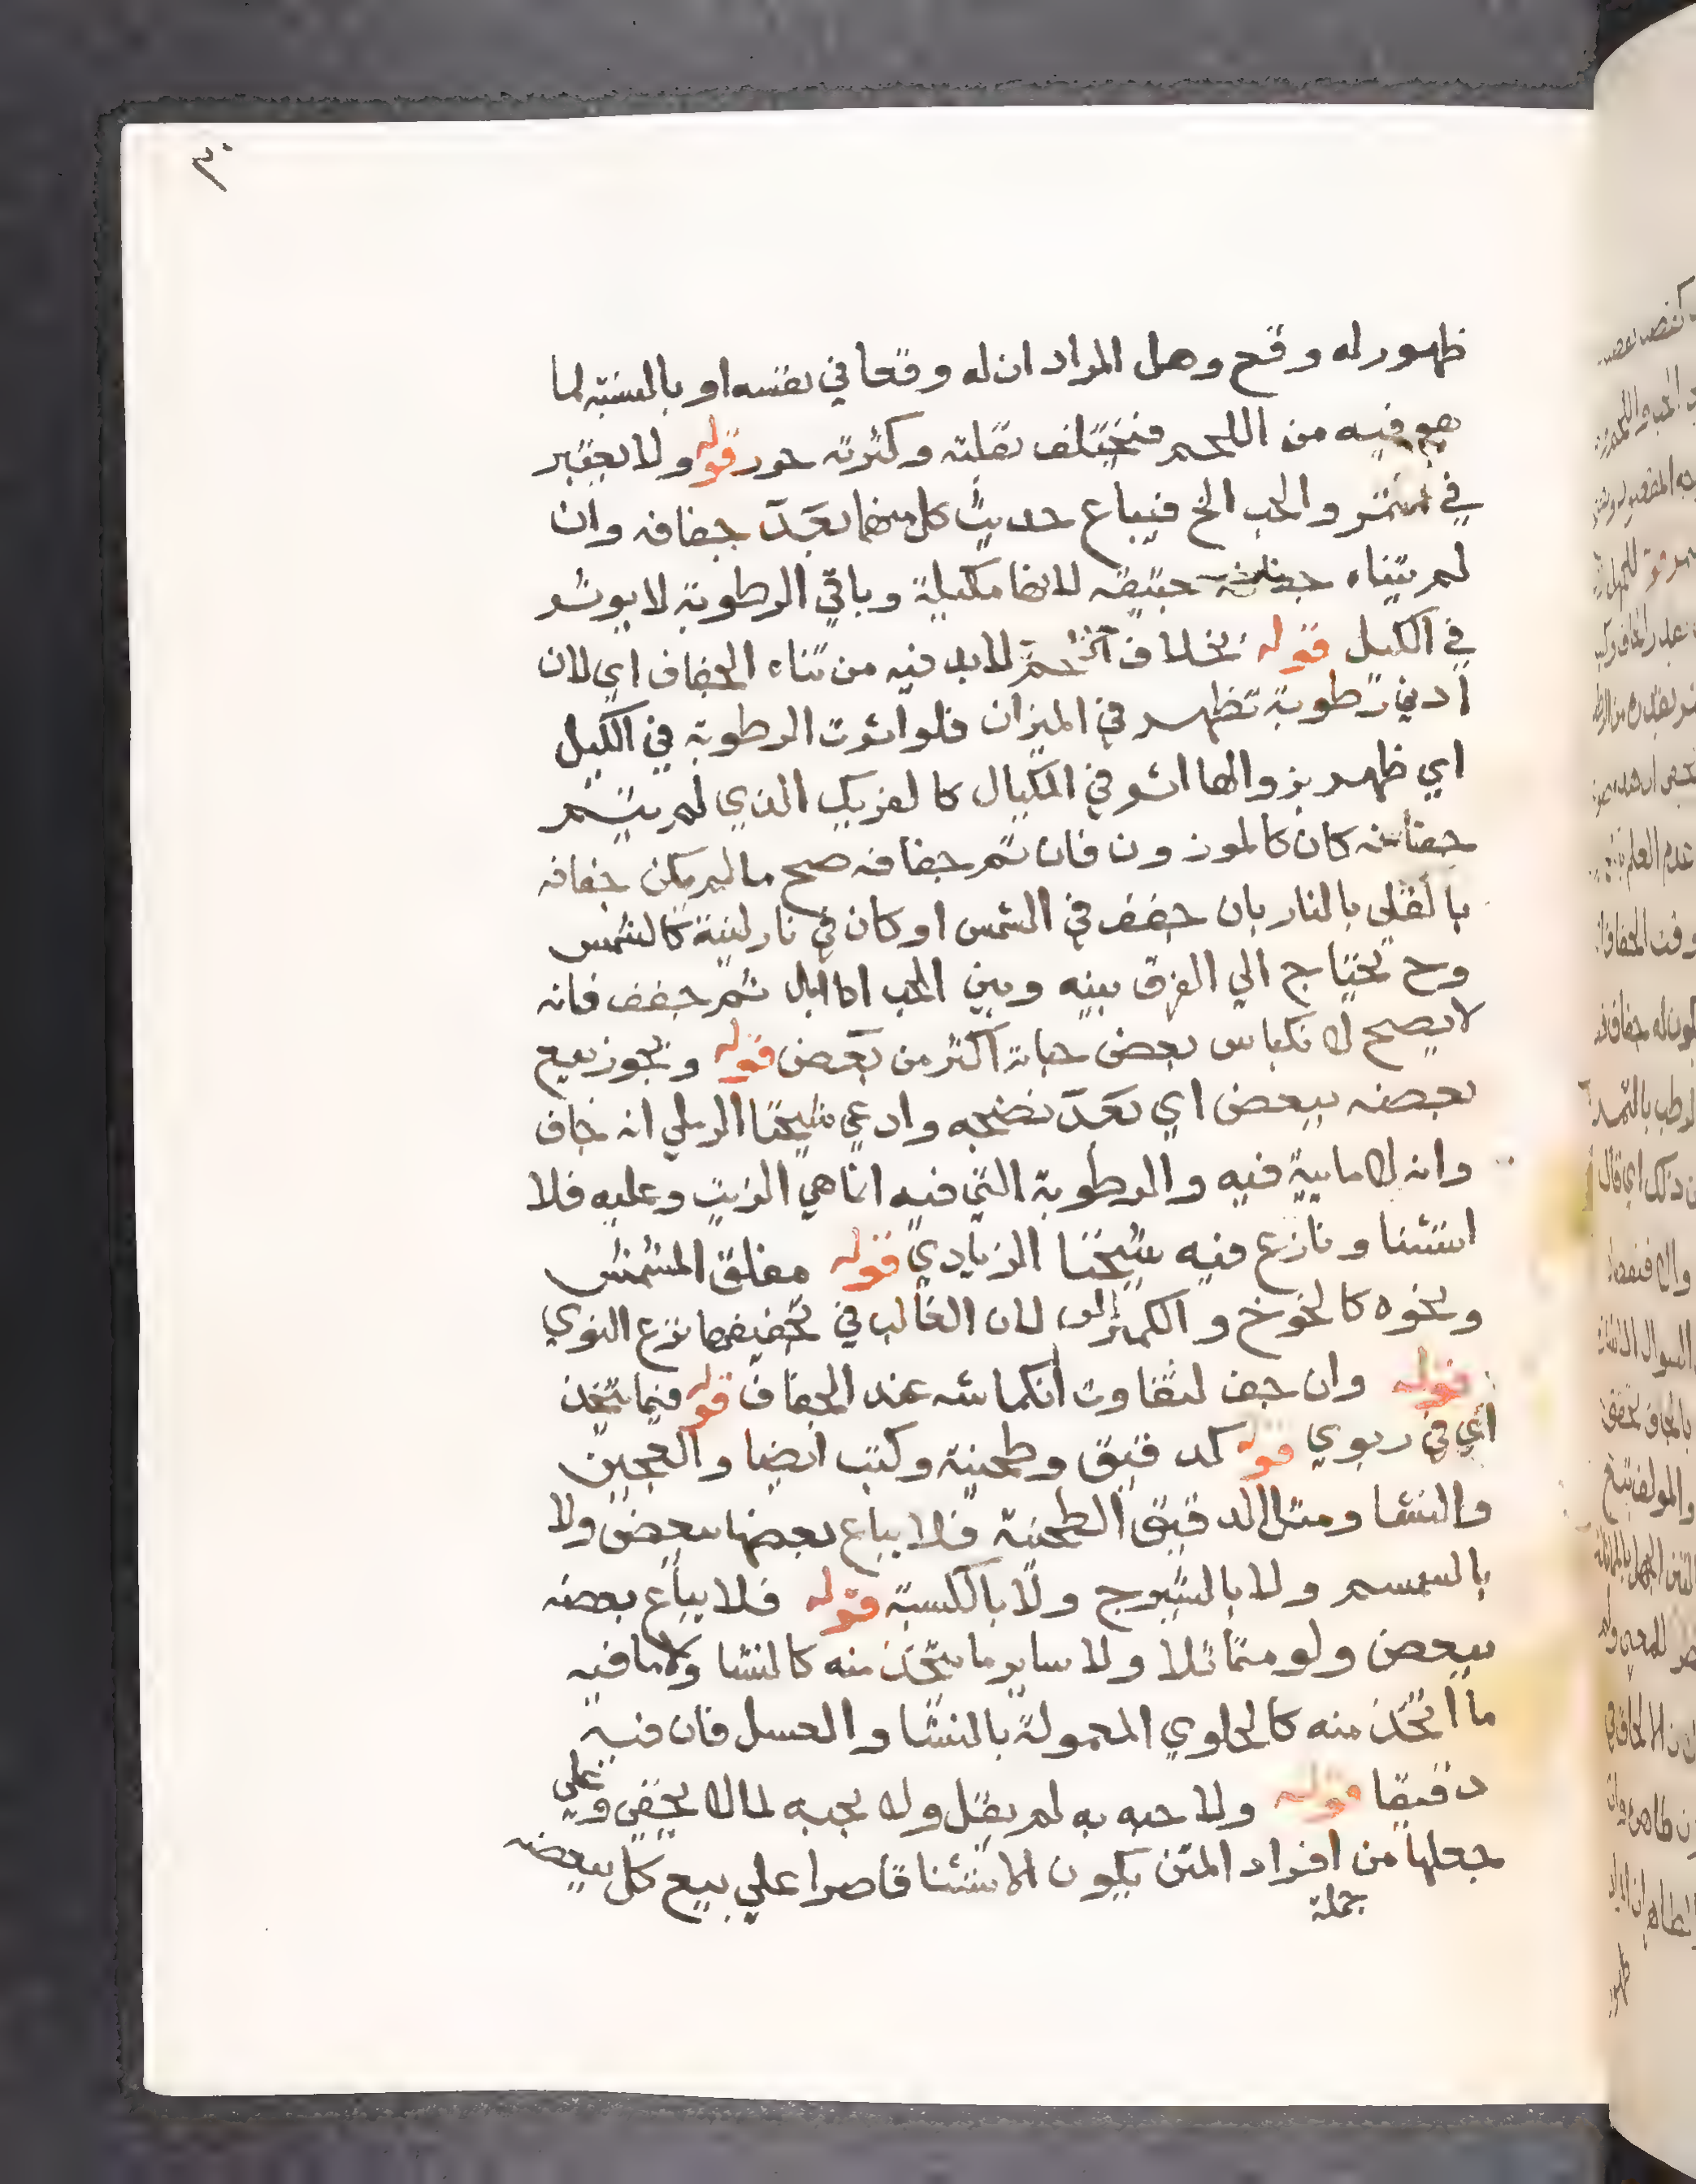 ٣٠
ظهور له وقع وهل المراد ان له وقعا في نفسه او بالنسبة لما
هو فيه من اللحم فيختلف بقلته وكثرته حرر قوله ولا يعتبر
في التمر والحب الخ فيباع حديث كل منهما بعد جفافه وان
لم يتناه جفافه حتيقه لانها مكيلة وباقي الرطوبة لا يوثر
في الكيل قوله بخلاف اللحم لابد فيه من تناه الجفاف اي لان
ادني رطوبة تظهر في الميزان فلو اثرت الرطوبة في الكيل
اي ظهر بزوالها اثر في المكيال كالفريك الذي لم يتم
جفافه كان كالموزون فان تم جفافه صح مالم يكن جفافه
بالقلي بالنار بان جفف في الشمس او كان في نار لينة كالشمس
وح نحتاج الي الفرق بينه وبين الحب اذا ابل ثم جفف فانه
لا يصح لانكباس بعض حباته اكثر من بعض قوله ويجوز بيع
بعضه ببعض اي بعد نضجه وادعي شيخنا الرملي انه جاف
وانه لا مايية فيه والرطوبة التي فيه انما هي الزيت وعليه فلا
استثنا ونازع فيه شيخنا الزيادي قوله مفلق المشمش
ونحوه كالخوخ والكمثري لان الغالب في تجفيفها نزع النوي
قوله وان جف لتفاوت انكماشه عند الجفاف قوله فيما يتخذ
اي في ربوي قوله كدقيق وطحينة وكتب ايضا والعجين
والنشا ومثل الدقيق الطحينة فلا يباع بعضها ببعض ولا
بالسمسم ولا بالشيرج ولا بالكسبة قوله فلا يباع بعضه
ببعض ولو متماثلا ولا ساير ما يتخذ منه كالنشا ولا ما فيه
ما اتخذ منه كالحلوي المعمولة بالنشا والعسل فان فيه
دقيقا قوله ولا حبه به لم يقل ولا بحبه لما لا يخفي وعلي
جعلها من افراد المتن يكون الاستثنا قاصرا علي بيع كل ببعضه
جملة